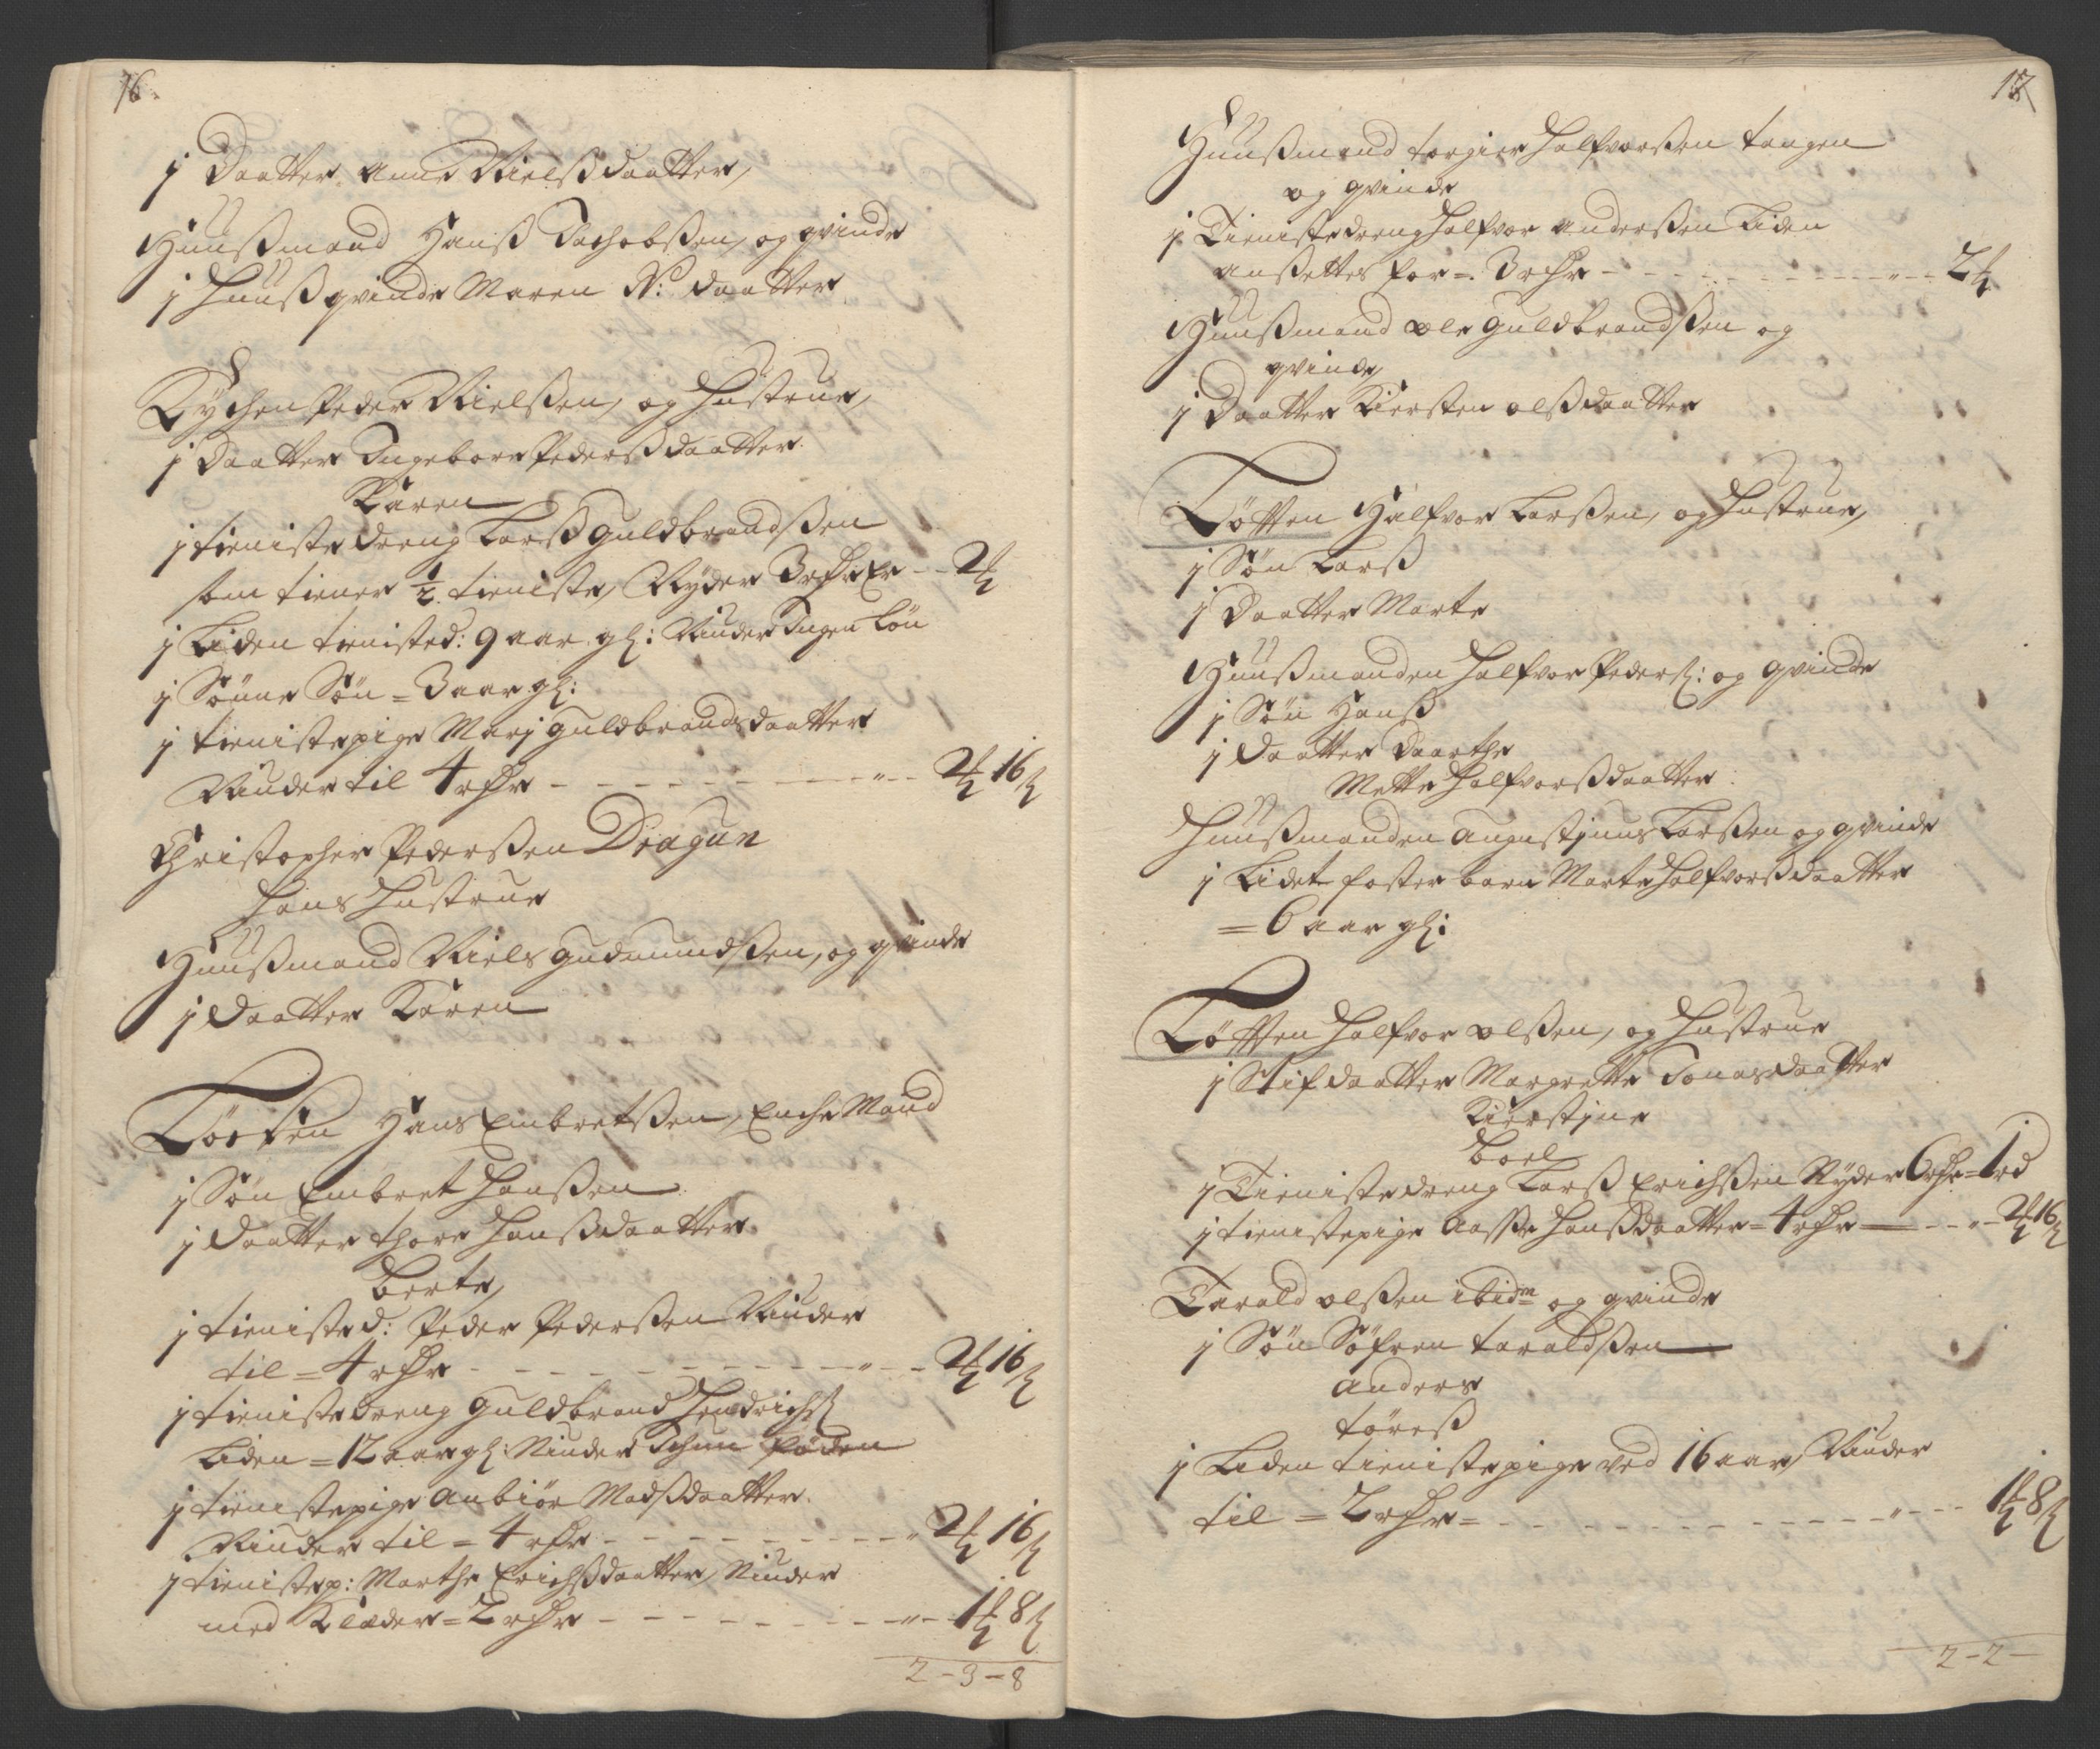 16.
j Daatter Anne Nielsßdaatter,
Huußmand Hanß Jachobßen, og qvinde
j Huußqvinde Maren N: daatter
Rychen Peder Nielßen, og Hustrue,
j Daatter Ingebore Pederßdaatter.
Karen
j tieniste dreng Larß Guldbrandßen
som tiener ½ tieniste, Nyder 3 rdlr Er - - 2 ₰
j Liden tienisted: 9 aar gl: Niuder Ingen Løn
j Sønne Søn = 3 aar gl:
j tienistepige Marj Guldbrandsdaatter
Niuder til 4 rdlr - - - - - - - „ - - 2 ₰ 16 ß
Christopher Pederßen Dragun
Hans Hustrue
Huußmand Niels Gudmundßen, og qvinde
j Daatter Karen
Tøften Hans Embretßen, Enche Mand
j Søn Embret Hanßen
j Daatter Thore Hanßdaatter
Berte,
j tienisted: Peder Pederßen Niuder
til = 4 rdlr - - - - - - - - - „ - - 2 ₰ 16 ß
j tieniste dreng Guldbrand Hendrichß
Liden = 12 aar gl: Niuder Ichun føden
j tienistepige Anbiør Madßdaatter.
Niuder til = 4 rdlr - - - - - - - - „ 2 ₰ 16 ß
j tienistep: Marthe Erichßdaatter, Niuder
med Klæder = 2 rdlr - - - - - - „ - - 1 ₰ 8 ß
2 - 3 - 8
17
Huußmand Torgier Halfvorßen Tangen
og qvinde
j Tienistedreng Halfvor Anderßen Liden
anßettes for = 3 rdlr - - - - - - - „ - - 2 ₰
Huußmand Ole Guldbrandßen og
qvinde,
j Daatter Kiersten Olßdaatter
Tøften Halfvor Larßen, og Hustrue,
j Søn Larß
j Daatter Marte
Huußmanden Halfvor Pederß: og qvinde
j Søn Hanß
j Daatter Daarthe
Mette Halfvorßdaatter
Huußmanden Augustjnus Larßen og qvinde
j Lidet foster barn Marte Halfvorßdaatter
= 6 aar gl:
Tøften Halfvor Olßen, og Hustrue
j Stifdaatter Margrette Jonasdaatter
Kierstjne
Boel
j Tienistedreng Larß Erichßen Nyder 6 rdlr = 1 rd
j tienistepige Aasse Hanßdaatter = 4 rdlr - - „ - 2 ₰ 16 ß
Tarald Olßen ibidm og qvinde
j Søn Søfren Taraldßen
Anders
Tøreß
j Liden tienistepige ved 16 aar, Niuder
til = 2 rdlr = - - - - - - - - - „ - - - 1 ₰ 8 ß
2 - 2 -